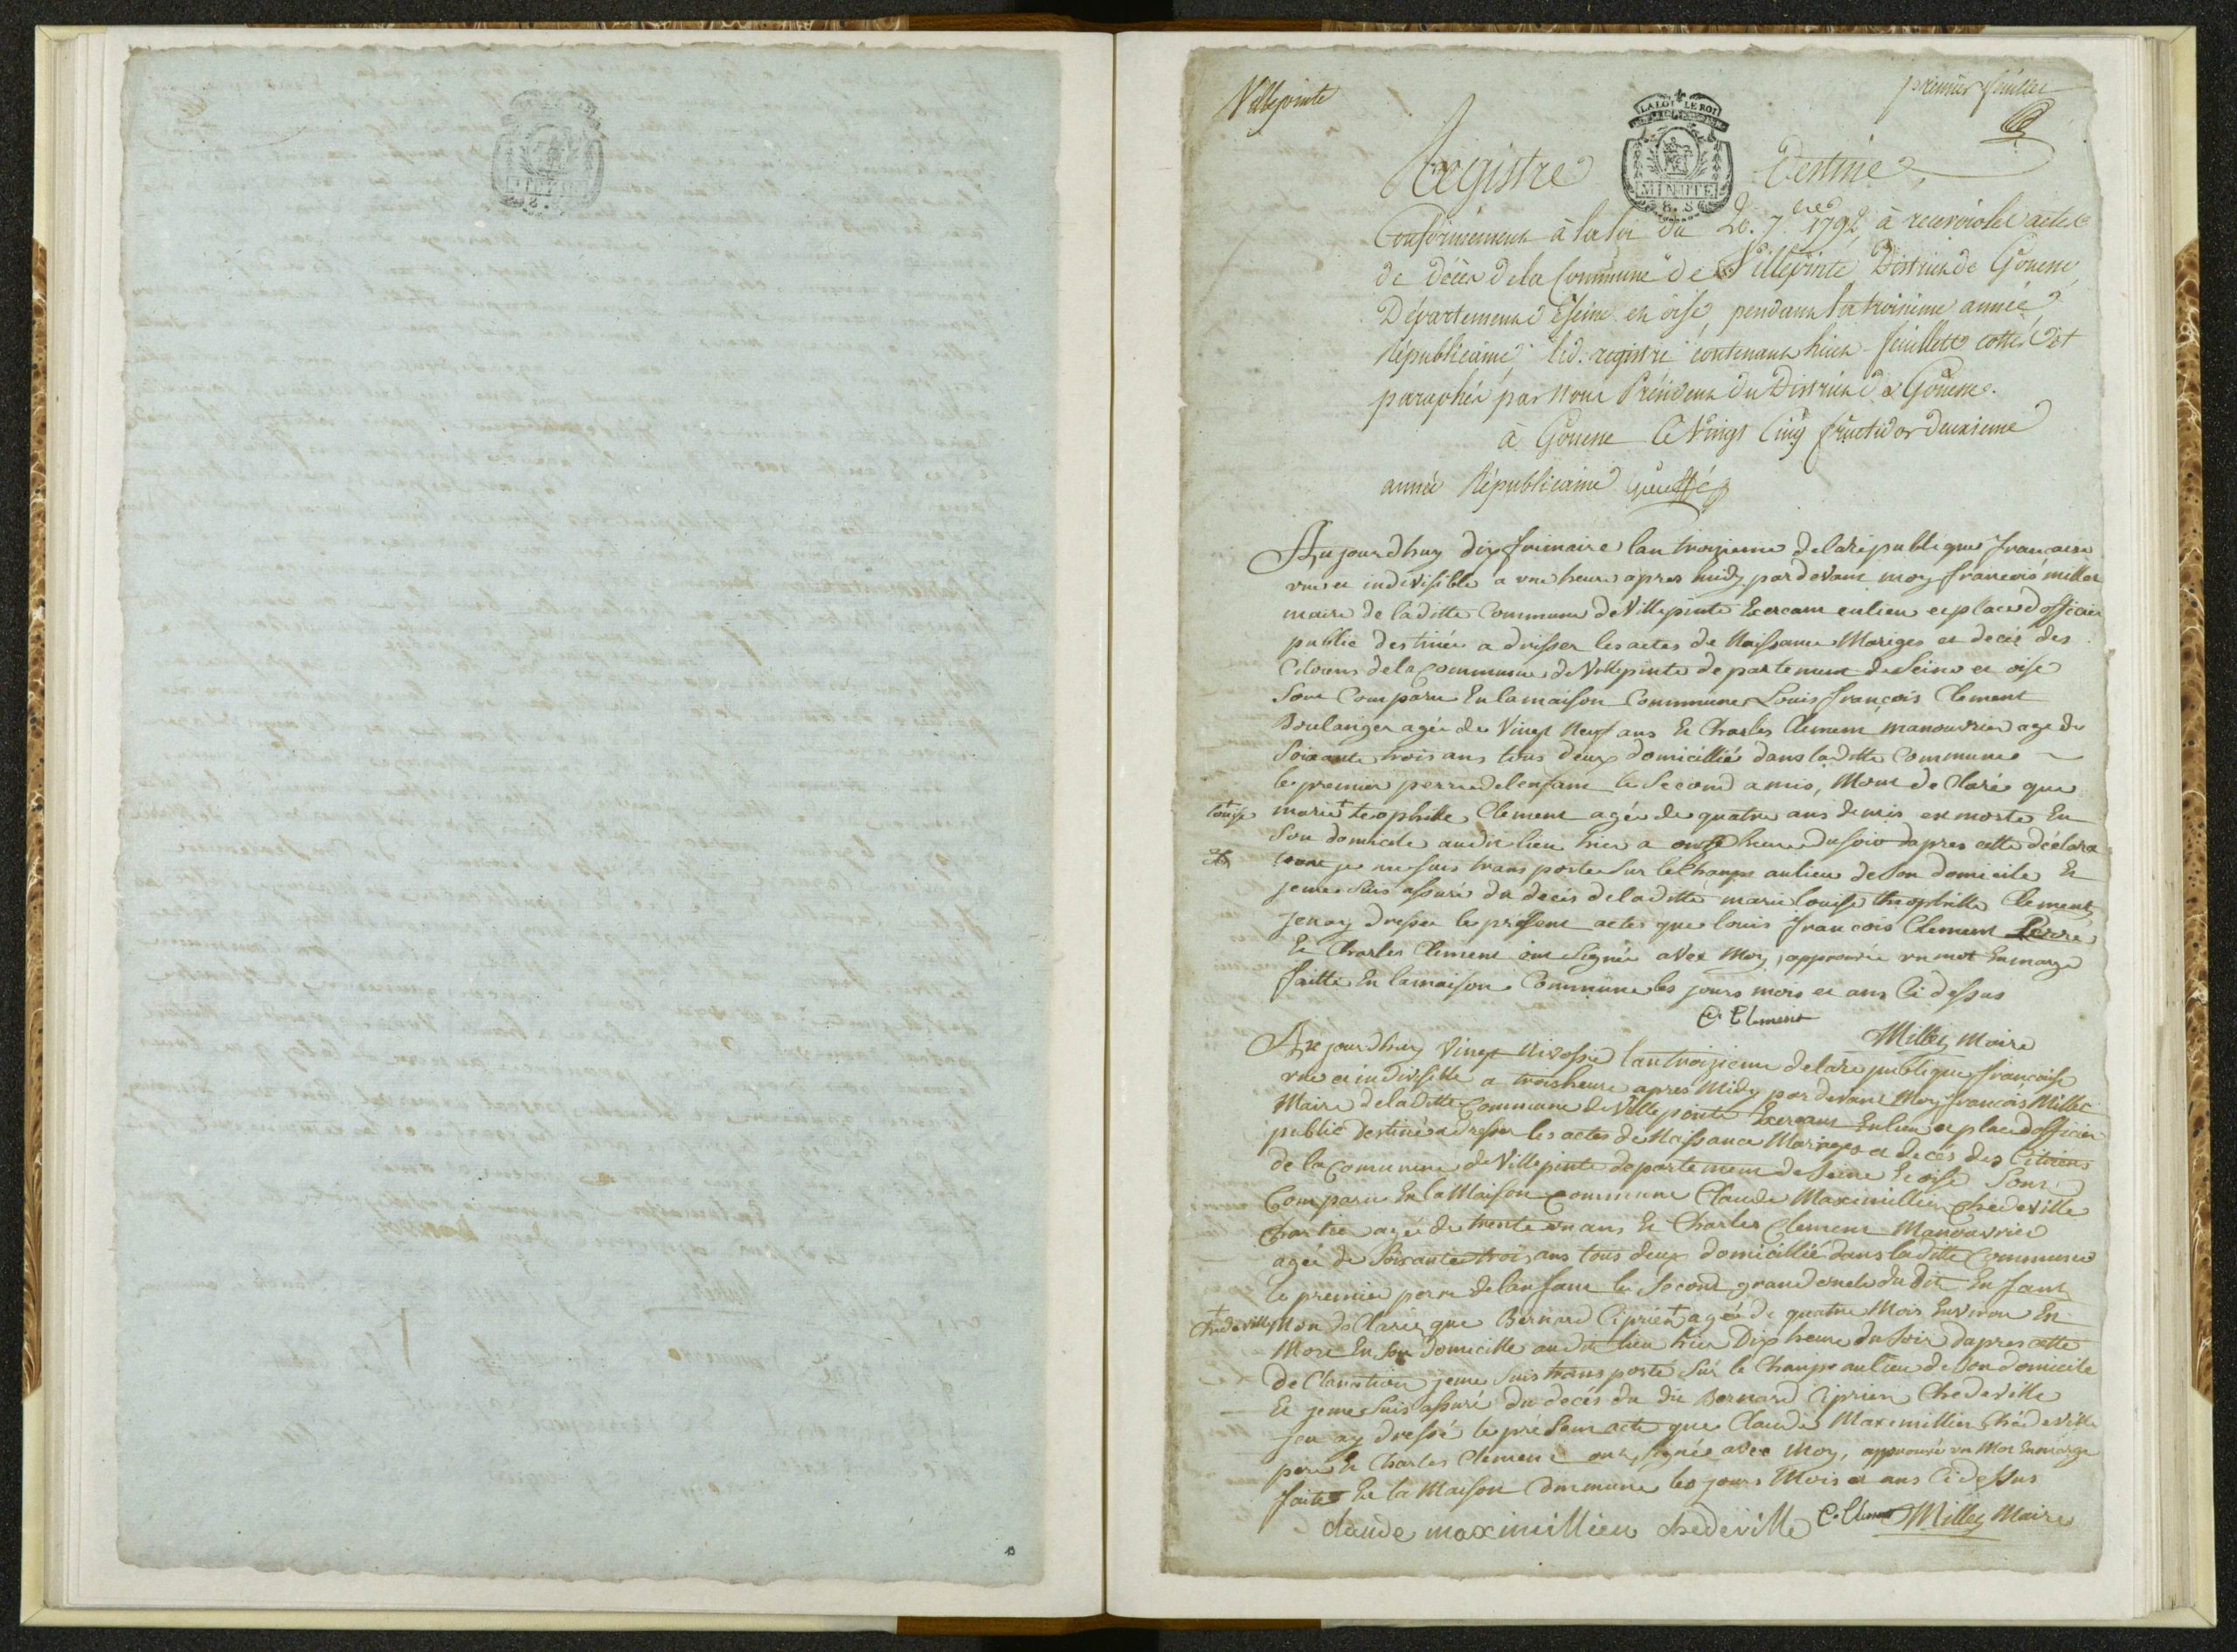 Villepinte
premier feuillet
LA LOI LE ROI
MINUTE
8. S
Registre Destiné
Conformément à la loi du 20. 7.bre 1792 à recevoir les actes
de décès de la Commune de Villepinte District de Gonesse
Département de Seine et oise, pendant la troisieme année
Républicaine, led. registre contenant huit feuillets cottés et
paraphés par nous Président du District de Gonesse.
à Gonesse le Vingt Cinq fructidor deuxieme
année Républicaine
Aujourdhuy dix frimaire lan troizieme de la république francaise
une et indivisible a une heure apres midy par devant moy francois millet
maire de laditte Commune de Villepinte Exercant en lieu et place dofficier
public destinée a dresser les actes de Naissance Mariges et decès des
Citoiens de la Commune de Villepinte departement de Seine et oise
Sont Comparu En la maison Commune Louis françois Clement
Boulanger agée de Vingt Neuf ans Et Charles Clement manouvrier age de
Soixante trois ans tous deux domicillié dans laditte Commune
le premier perre de lenfant le Second amis, Mont declaré que
+ louise
marie + teophille Clement agée de quatre ans demis est morte En
Son domicile audit lieu hier a onze heure du soir dapres cette déclara
tion je me suis transporté Sur le Champs au lieu de Son domicile Et
je me Suis assuré du decès de laditte marie louise theophille Clement
jen ay dressée le présent actes que louis francois Clement Perre
Et Charles Clement ont Signée avec Moy, approuvée un mot En marge
faitte En la maison Commune les jours mois et ans Ci dessus
C. Clement
Millet Maire
Aujourdhuy Vingt Nivosse lan troizieme de la republique francaise
une et indivisible a trois heure apres Midy par devant Moy francois Millet
Maire de laditte Commune de Villepinte Exercant En lieu et place dofficier
public Destinée a dresser les actes de Naissance Mariages et decès des Citoiens
de la Commune de Villepinte departement de Seine Et oise Sont
Comparu En la Maison Commune Claude Maximillien chedeville
Chartier agée de trente un ans Et Charles Clement Manouvrier
agée de Soixante trois ans tous deux domicillié dans laditte Commune
le premier perre de lenfant le Second grand oncle du dit Enfant
+ Chedeville
Mon declarée que Bernard Ciprien + agée de quatre Mois Environ Est
Mort En Son domicille audit lieu hier Dix heure du Soir dapres cette
declaration je me Suis transporté Sur le Champs au lieu de Son domicile
Et je me Suis assuré du decès du dit Bernard Ciprien Chedeville
jen ay dressé le présent acte que Claude Maximillien Chédeville
pere Et Charles Clement ont signée avec Moy, approuvé un Mot En marge
faite En la Maison Commune les jours Mois et ans Ci dessus
claude maximillien chedeville C. Clement Millet Maire